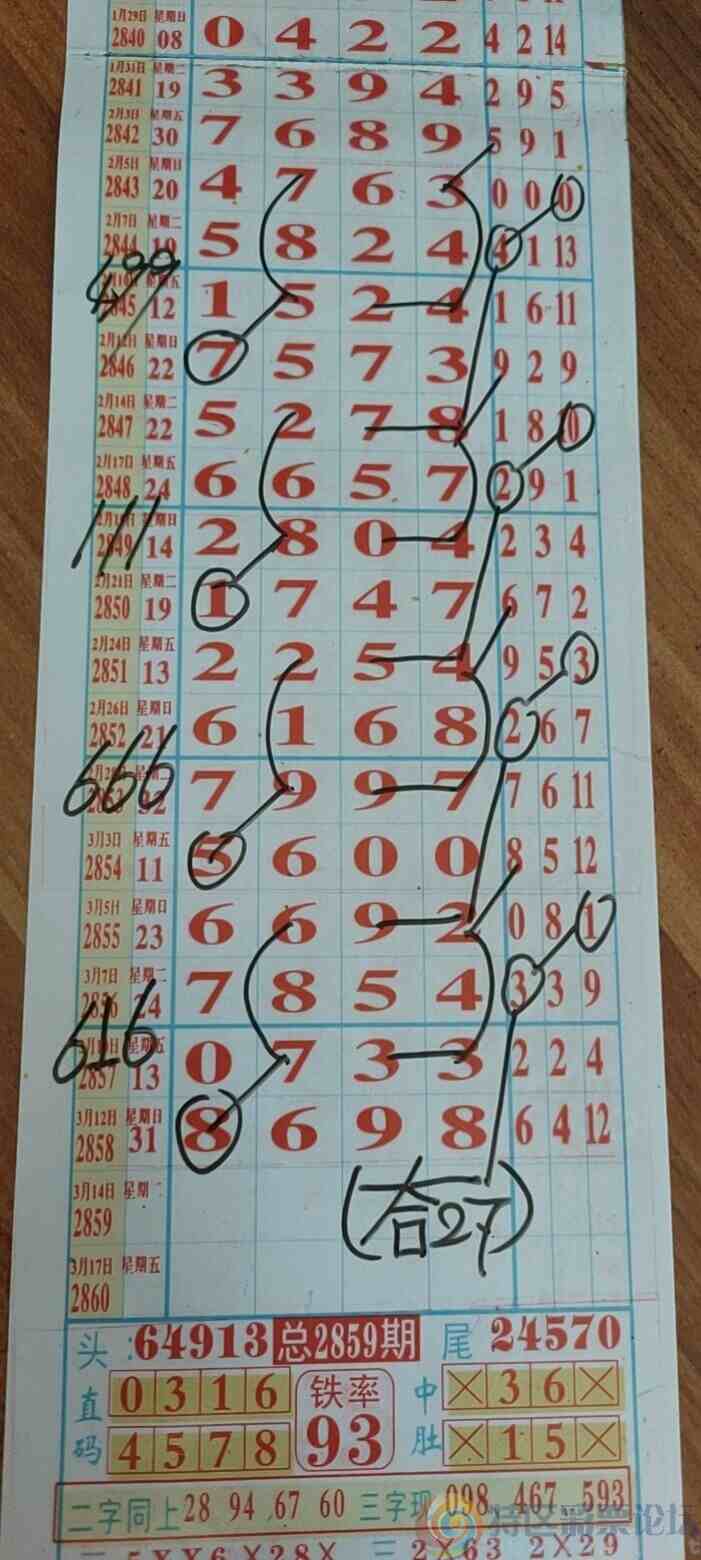 1月29日 星期日
2840 08 0 4 2 2 4 2 14
1月31日 星期二
2841 19 3 3 9 4 2 9 5
2月3日 星期五
2842 30 7 6 8 9 5 9 1
2月5日 星期日
2843 20 4 7 6 3 0 0 0
2月7日 星期二
2844 19 5 8 2 4 4 1 13
499
2月10日 星期五
2845 12 1 5 2 4 1 6 11
2月12日 星期日
2846 22 7 5 7 3 9 2 9
2月14日 星期二
2847 22 5 2 7 8 1 8 10
2月17日 星期五
2848 24 6 6 5 7 2 9 1
111
2月19日 星期日
2849 14 2 8 0 4 2 3 4
2月21日 星期二
2850 19 1 7 4 7 6 7 2
2月24日 星期五
2851 13 2 2 5 4 9 5 3
2月26日 星期日
2852 21 6 1 6 8 2 6 7
666
2月28日 星期二
2853 32 7 9 9 7 7 6 11
3月3日 星期五
2854 11 5 6 0 0 8 5 12
3月5日 星期日
2855 23 6 6 9 2 0 8 1
3月7日 星期二
2856 24 7 8 5 4 3 3 9
616
3月10日 星期五
2857 13 0 7 3 3 2 2 4
3月12日 星期日
2858 31 8 6 9 8 6 4 12
3月14日 星期二
2859
(合27)
3月17日 星期五
2860
头:64913 总2859期 尾 24570
直码 0316 铁率 中肚 ×36×
4578 93 ×15×
二字同上 28 94 67 60 三字现 098 467 593
特区彩票论坛